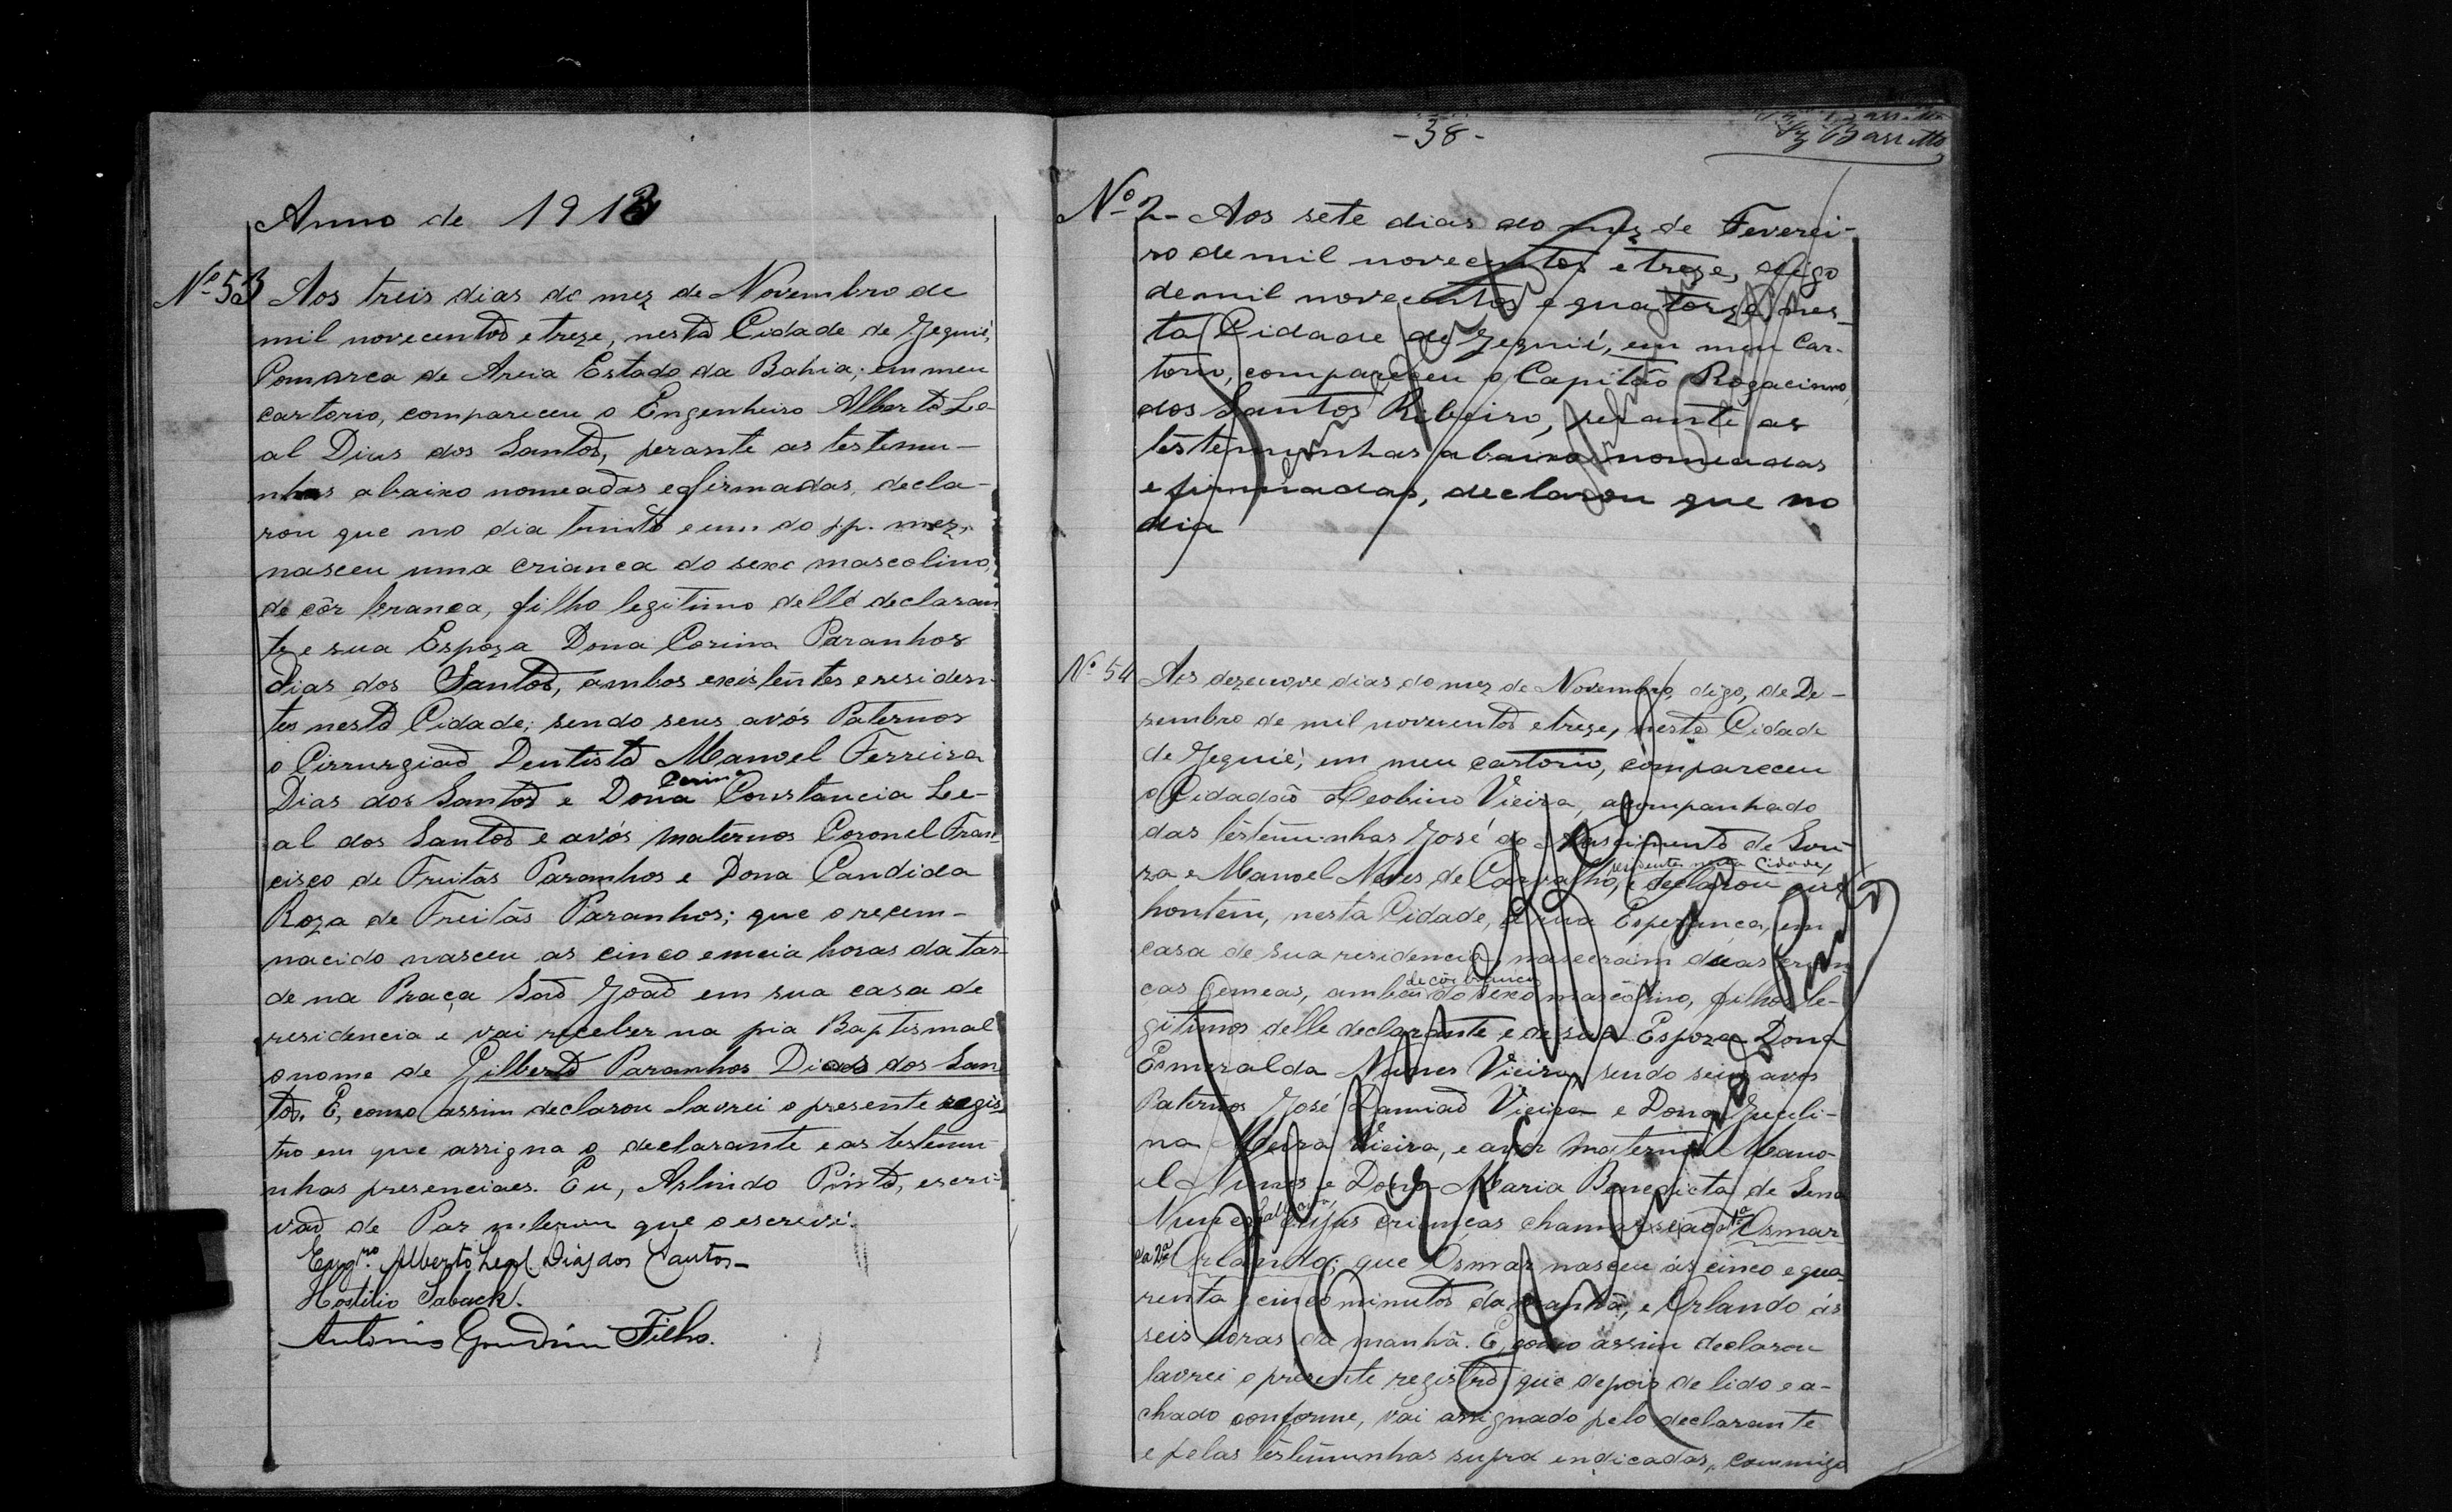 Anno de 1913
Nº 53 Aos treis dias do mez de Novembro de
mil novecentos e treze, nesta Cidade de Jequié,
Comarca de Areia Estado da Bahia; em meu
cartorio, compareceu o Engenheiro Alberto Le-
al Dias dos Santos, perante as testemu-
nhas abaixo nomeadas e firmadas, decla-
rou que no dia trinta e um do p.p. mez,
nasceu uma crianca do sexo mascolino,
de côr branca, filho legitimo delle declaran-
te e sua Espoza Dona Corina Paranhos
dias dos Santos, ambos existentes e residen-
tes nesta Cidade; sendo seus avós Paternos
o Cirrurgiaõ Dentista Manoel Ferreira
Dias dos Santos e Dona Constancia Le-
al dos Santos e avós maternos Coronel Fran-
cisco de Freitas Paranhos e Dona Candida
Roza de Freitas Paranhos; que o recem-
nacido nasceu as cinco e meia horas da tar-
de na Praça Saõ Joaõ em sua casa de
residencia e vai receber na pia Baptismal
o nome de Gilberto Paranhos Dias dos San-
tos. E, como assim declarou lavrei o presente regis-
tro em que assigna o declarante e as testemu-
nhas presenciaes. Eu, Arlindo Pinto, escri-
vaõ de Paz que o escrevi.
Engrº. Alberto Leal Dias dos Santos-
Hostilio Saback.
Antonio Gondim Filho.
-38-
Barretto
Nº 2- Aos sete dias do mez de Feverei-
ro de mil novecentos e treze, digo
de mil novecentos e quatorze, nes-
ta Cidade de Jequié, em meu Car-
torio, compareceu o Capitão Rogaciano
dos Santos Ribeiro, perante as
testemunhas abaixo nomeadas
e firmadas, declarou que no
dia
Nº 54 Aos dezenove dias do mez de Novembro, digo, de De-
zembro de mil novecentos e treze, nesta Cidade
de Jequié, em meu cartorio, compareceu
o Cidadaõ Leobino Vieira, acompanhado
das testemunhas José do Nascimento de Sou-
za e Manoel Neves de Carvalho, residentes nesta Cidade, e declarou que
hontem, nesta Cidade, á rua Esperança, em
casa de sua residencia, nasceram duas crian-
cas Gemeas, ambas de côr branca do sexo mascolino, filhos le-
gitimos delle declarante e de sua Espoza Dona
Esmeralda Nunes Vieira, sendo seus avos
Paternos José Damiaõ Vieira e Dona
na Vieira, e avós maternos Mano-
el Nunes e Dona Maria Benedicta de Sena
Nunes cujas crianças chamar-se a 1ª Osmar
e a 2ª Orlando; que Osmar nasceu ás cinco e qua-
renta e cinco minutos da manhã, e Orlando ás
seis horas da manhã. E, como assim declarou
lavrei o presente registro que depois de lido e a-
chado conforme, vai assignado pelo declarante
e pelas testemunhas supra indicadas, commigo